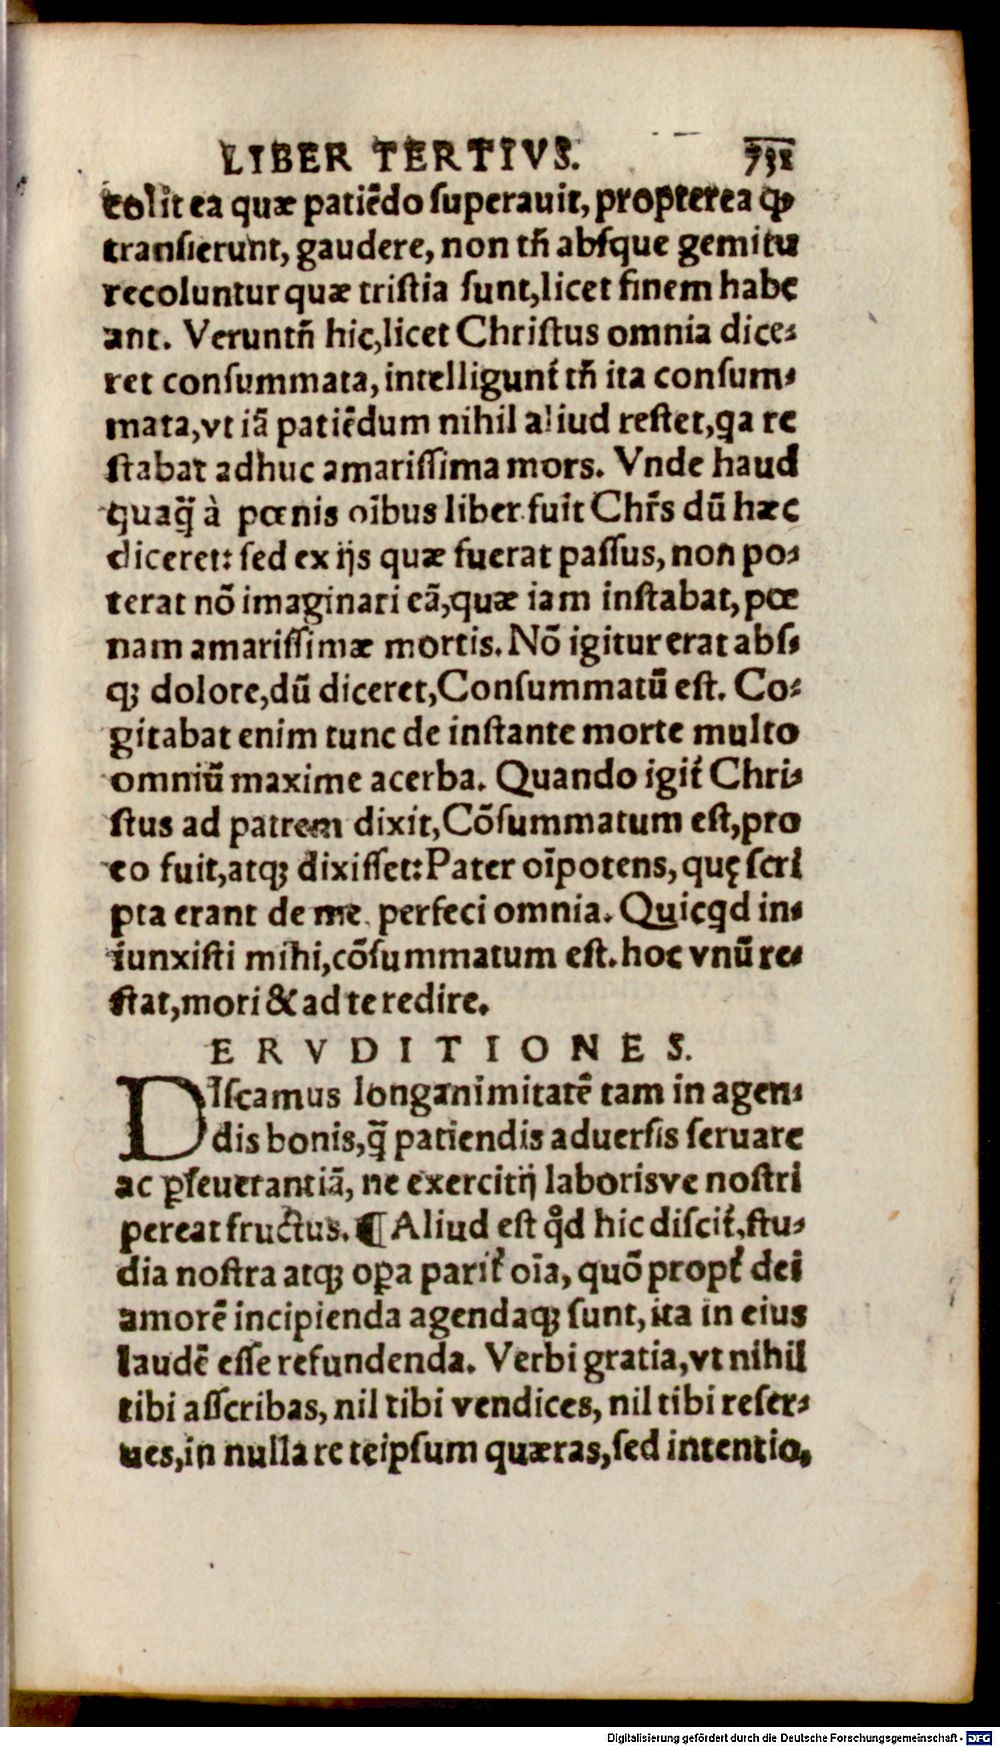 LIBER TERTIVS. 731
colit ea quæ patiẽdo ſuperauit, propterea ꝙ
tranſierunt, gaudere, non tñ abſque gemitu
recoluntur quæ triſtia ſunt, licet finem habe
ant. Veruntñ hic, licet Chriſtus omnia dice⸗
ret conſummata, intelligunt᷑ tñ ita conſum⸗
mata, vt iã patiẽdum nihil aliud reſtet, ꝗa re
ſtabat adhuc amariſſima mors. Vnde haud
quaꝗ̃ à pœnis oĩbus liber fuit Chr̃s dũ hæc
diceret: ſed ex ijs quæ fuerat paſſus, non po⸗
terat nõ imaginari eã, quæ iam inſtabat, pœ
nam amariſſimæ mortis. Nõ igitur erat abſ⸗
qꝫ dolore, dũ diceret, Conſummatũ eſt. Co⸗
gitabat enim tunc de inſtante morte multo
omniũ maxime acerba. Quando igit᷑ Chri⸗
ſtus ad patrem dixit, Cõſummatum eſt, pro
eo fuit, atqꝫ dixiſſet: Pater oĩpotens, quę ſcri
pta erant de me perfeci omnia. Quicꝗd in⸗
iunxiſti mihi, cõſummatum eſt. hoc vnũ re⸗
ſtat, mori & ad te redire.
ERVDITIONES.
DIſcamus longanimitatẽ tam in agen⸗
dis bonis, ꝗ̃ patiendis aduerſis ſeruare
ac ꝑſeuerantiã, ne exercitij laborisve noſtri
pereat fructus. ¶ Aliud eſt qͦd hic diſcit᷑, ſtu⸗
dia noſtra atqꝫ oꝑa parit᷑ oĩa, quõ propt᷑ dei
amorẽ incipienda agendaqꝫ ſunt, ita in eius
laudẽ eſſe refundenda. Verbi gratia, vt nihil
tibi aſſcribas, nil tibi vendices, nil tibi reſer⸗
ues, in nulla re teipſum quæras, ſed intentio⸗
Digitalisierung gefördert durch die Deutsche Forschungsgemeinschaft - DFG